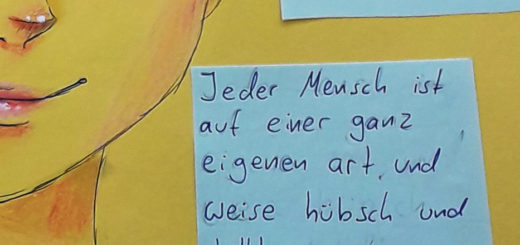 Jeder Mensch ist
auf einer ganz
eigenen art, und
weise hübsch und